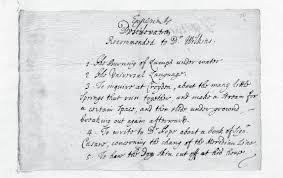 Experimts
Desiderata
Recommended to Dr. Wilkins.
1. The Burning of Lamps under water
2. The Universal Language.
3. To inquire at Croydon, about the many little
Springs that run together, and make a stream for
a certain space, and then slide under ground
breaking out again afterwards.
4. To write to Dr. Pope about a book of Sigr
Cassini, concerning the chang of the Meridian Line.
5. To have the Dog skin cut off at